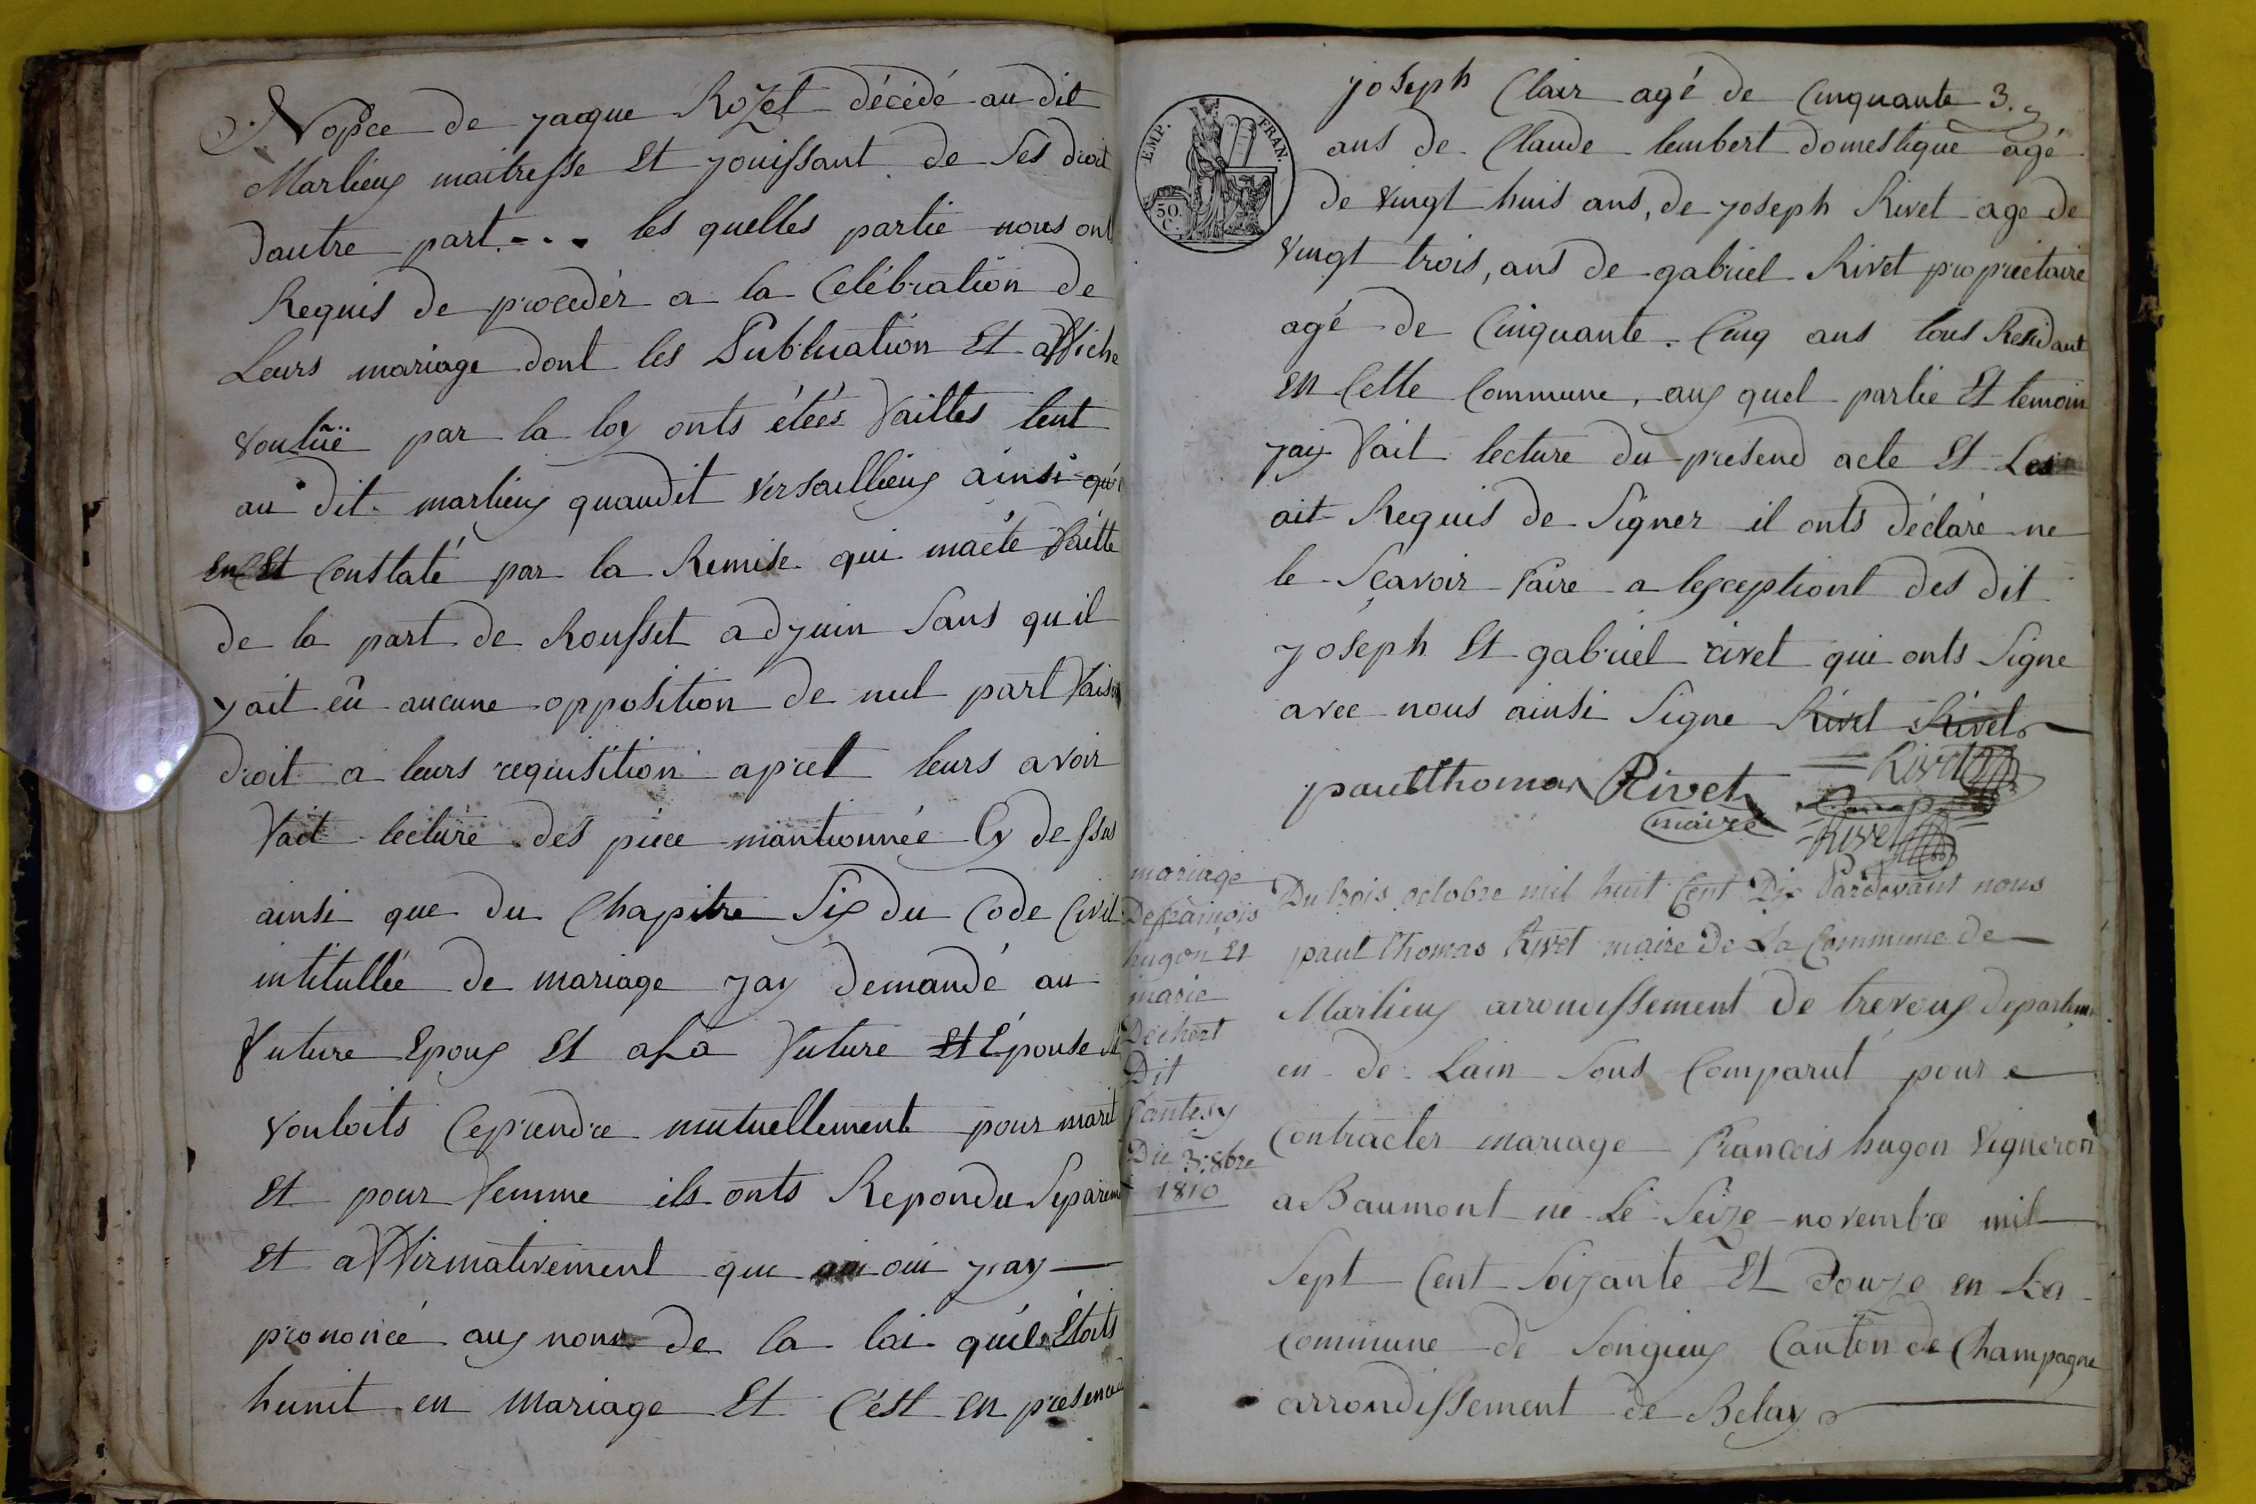 Nopce de jacque Rozet décédé au dit
Marlieux maitresse Et jouissant de Ses droit
Dautre part. - - . les quelles partie nous ont
Requis de proceder a la Celébration de
Leurs mariage dont les Publication Et affiche
voulüe par la loy onts étéés faittes tent
au dit marlieux quaudit versaillieux ainsi qu'i
en Est Constaté par la Remise qui maété faitte
de la part de Rousset adjuin Sans qu'il
y ait eû aucune opposition de nul part fais
droit a leurs requisition apret leurs avoir
fait lecture des piece mantionnée Cy dessus
ainsi que du Chapitre Six du Code Civil
intitullée de mariage jay demandé au
future Epoux Et a La future Et Épouse Si
vouloits Ceprendre mutuellement pour marit
Et pour femme ils onts Repondu Separem
Et affirmativement que oui jay
prononcé aux nom de la loi quils Étoits
hunit en mariage Et C'est en presence
EMP. FRAN.
50. C.
joseph Clair agé de Cinquante 3.
ans de Claude lembert domestique agé
de vingt huis ans, de joseph Rivet age de
vingt trois, ans de gabriel Rivet proprietaire
agé de Cinquante. Cinq ans tous Residant
en Cette Commune, aux quel partie Et temoin
jay fait lecture du presend acte Et Les
ait Requis de Signer il onts déclaré ne
le Sçavoir faire a lexceptiont des dit
joseph Et gabriel rivet qui onts Signe
avec nous ainsi Signe Rivet Rivet
paul thomas Rivet Rivet
maire
Rivet
mariage
De françois
hugon Et
marie
Dechert
Dit
fantesy
Du 3: 8bre
1810
Du trois octobre mil huit Cent Dix Pardevant nous
paul thomas Rivet maire De La Commune de
Marlieux arrondissement de trevoux departem
en de Lain Sous Comparut pour
Contracter mariage francois hugon vigneron
a Baumont ne Le Seize novembre mil
Sept Cent Soizante Et Douze en La
commune de Songieux Canton de Champagne
arrondissement de Belay